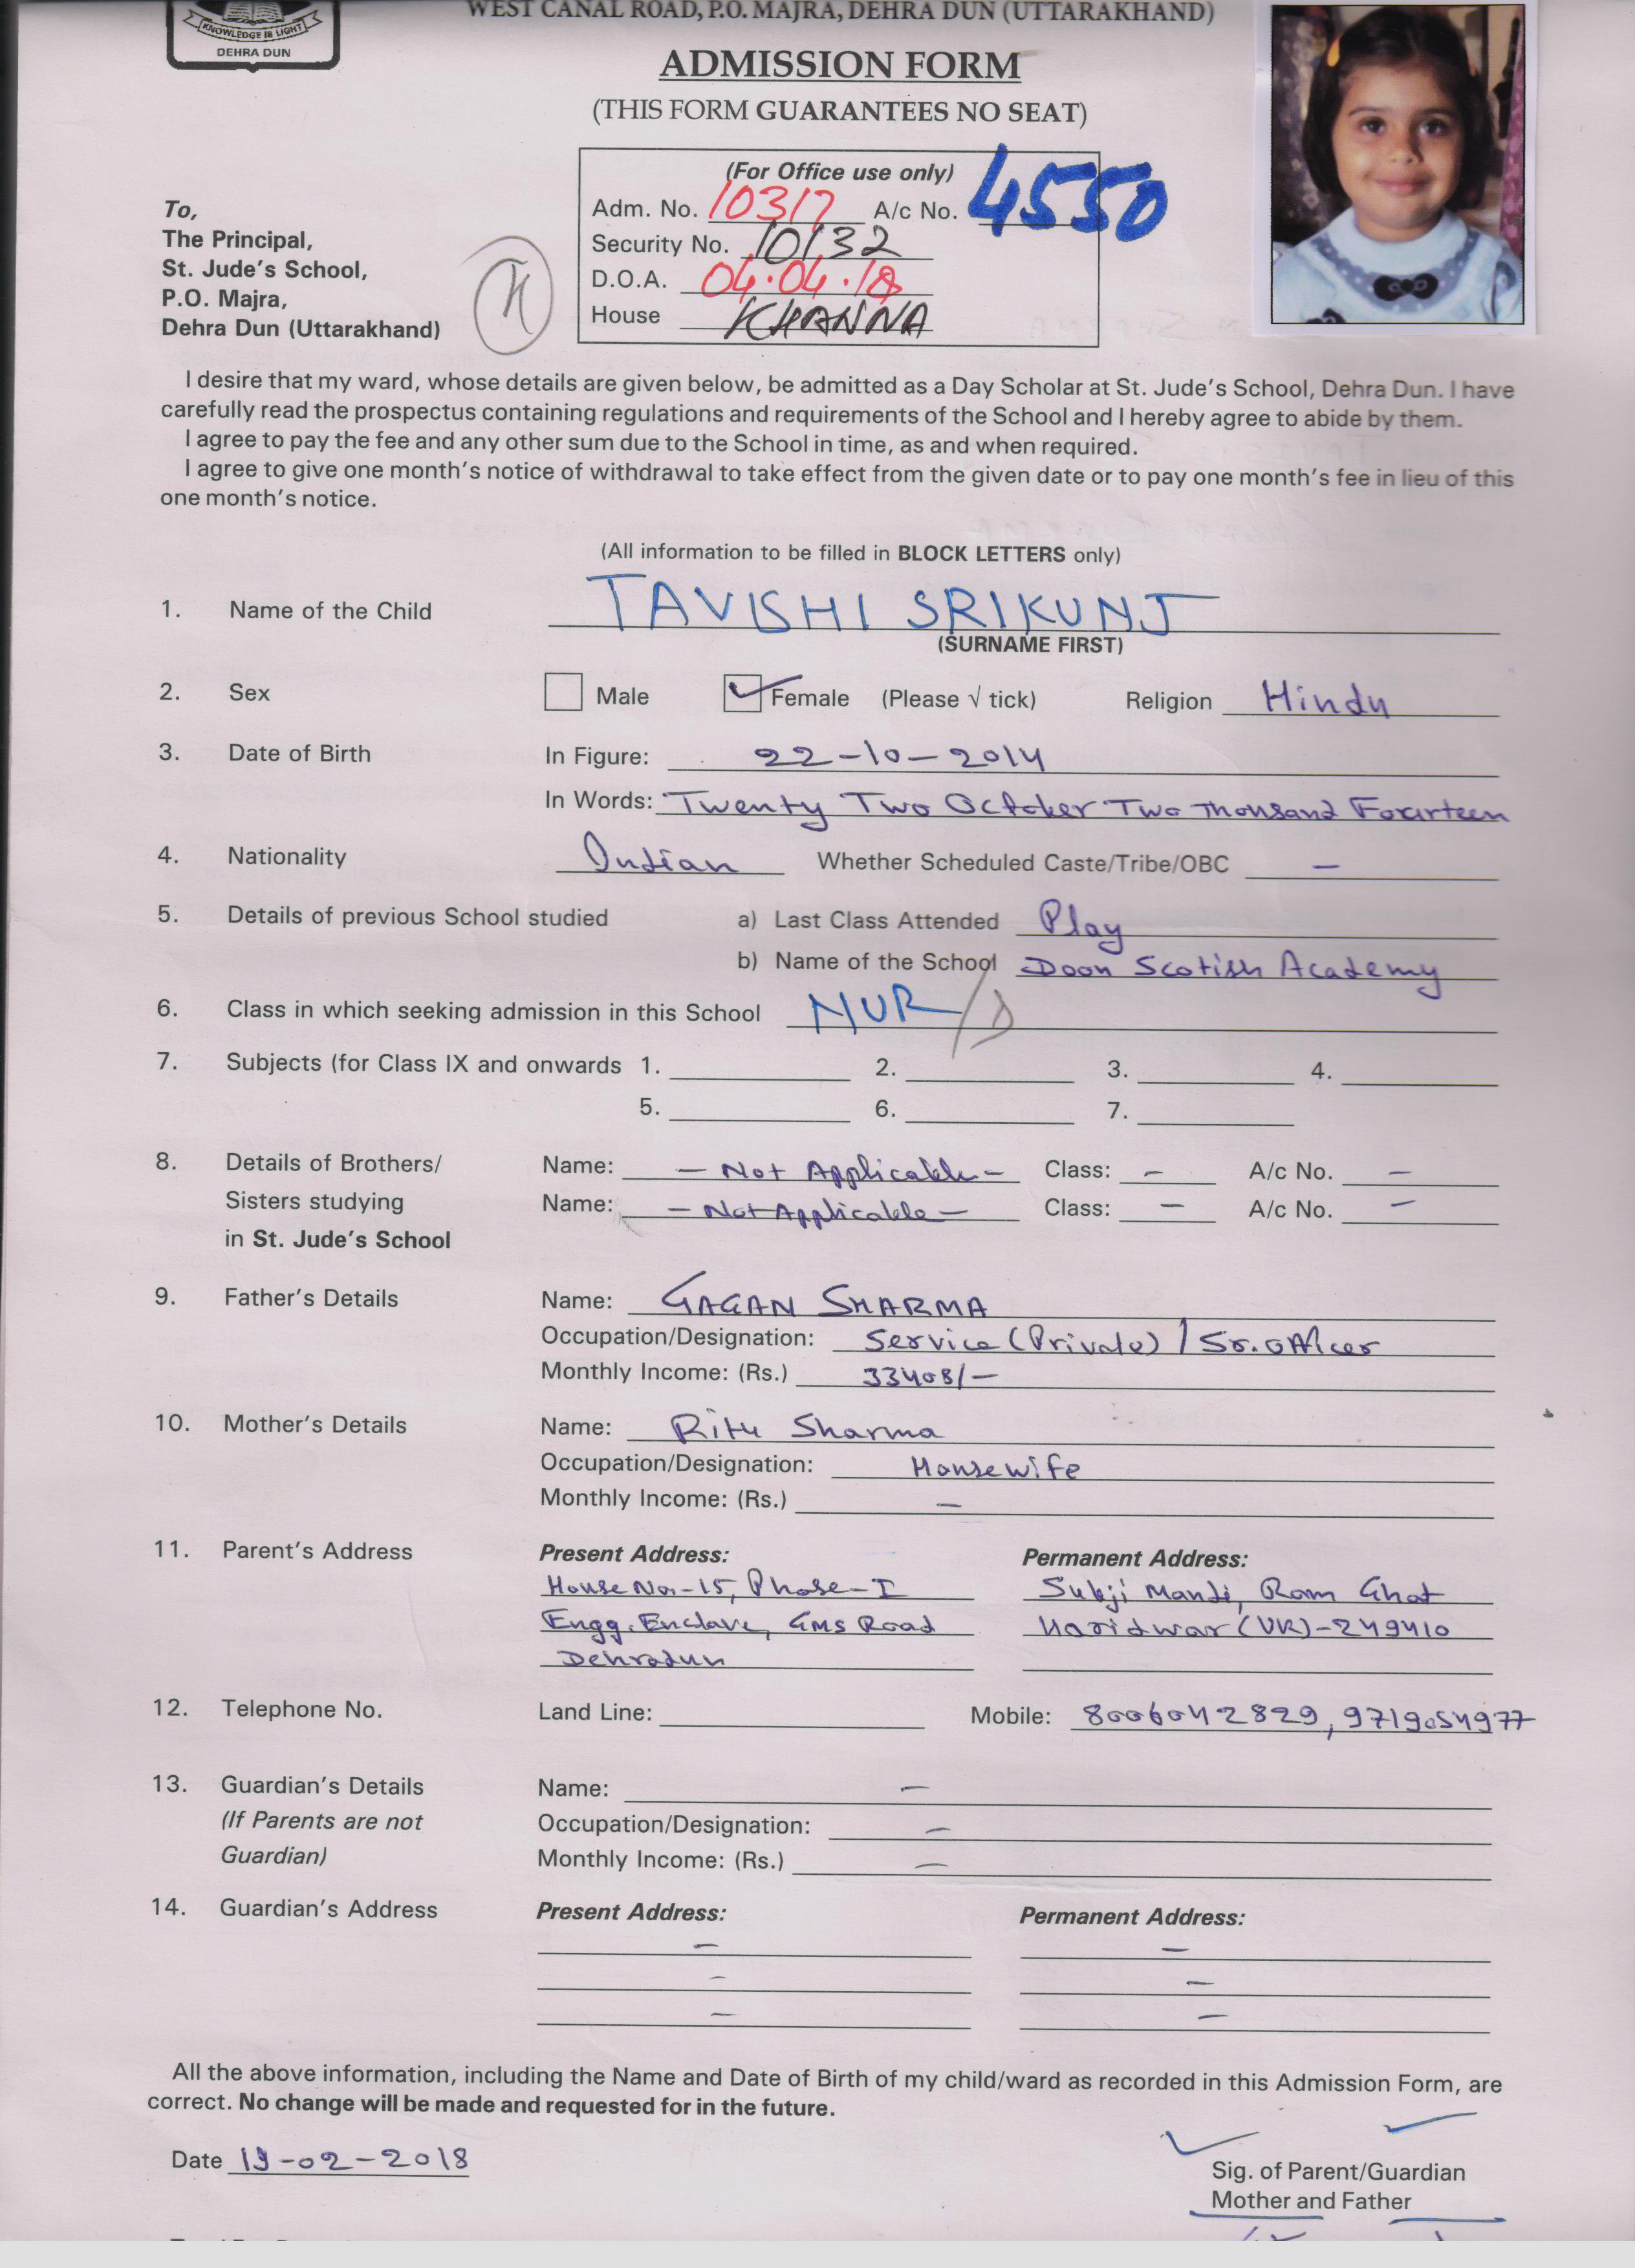 WEST CANAL ROAD, P.O. MAJRA, DEHRA DUN (UTTARAKHAND)
KNOWLEDGE IS LIGHT
DEHRA DUN
ADMISSION FORM
(THIS FORM GUARANTEES NO SEAT)
(For Office use only)
Adm. No. 10317 A/c No. 4550
Security No. 10132
D.O.A. 04.04.18
House KHANNA
To,
The Principal,
St. Jude's School,
P.O. Majra,
Dehra Dun (Uttarakhand)
I desire that my ward, whose details are given below, be admitted as a Day Scholar at St. Jude's School, Dehra Dun. I have
carefully read the prospectus containing regulations and requirements of the School and I hereby agree to abide by them.
I agree to pay the fee and any other sum due to the School in time, as and when required.
I agree to give one month's notice of withdrawal to take effect from the given date or to pay one month's fee in lieu of this
one month's notice.
(All information to be filled in BLOCK LETTERS only)
1. Name of the Child TAVISHI SRIKUNJ
(SURNAME FIRST)
2. Sex Male Female (Please √ tick) Religion Hindu
3. Date of Birth In Figure: 22-10-2014
In Words: Twenty Two October Two Thousand Fourteen
4. Nationality Indian Whether Scheduled Caste/Tribe/OBC –
5. Details of previous School studied a) Last Class Attended Play
b) Name of the School Doon Scotish Academy
6. Class in which seeking admission in this School NUR/D
7. Subjects (for Class IX and onwards 1. 2. 3. 4.
5. 6. 7.
8. Details of Brothers/ Name: – Not Applicable – Class: – A/c No. –
Sisters studying Name: – Not Applicable – Class: – A/c No. –
in St. Jude's School
9. Father's Details Name: GAGAN SHARMA
Occupation/Designation: Service (Private) / Sr. Officer
Monthly Income: (Rs.) 33408/-
10. Mother's Details Name: Ritu Sharma
Occupation/Designation: Housewife
Monthly Income: (Rs.) –
11. Parent's Address Present Address: Permanent Address:
House No-15, Phase-I Subji Mandi, Ram Ghat
Engg. Enclave, GMS Road Haridwar (UK)-249410
Dehradun
12. Telephone No. Land Line: Mobile: 8006042829, 9719054977
13. Guardian's Details Name: –
(If Parents are not Occupation/Designation: –
Guardian) Monthly Income: (Rs.) –
14. Guardian's Address Present Address: Permanent Address:
– –
– –
– –
All the above information, including the Name and Date of Birth of my child/ward as recorded in this Admission Form, are
correct. No change will be made and requested for in the future.
Date 19-02-2018
Sig. of Parent/Guardian
Mother and Father